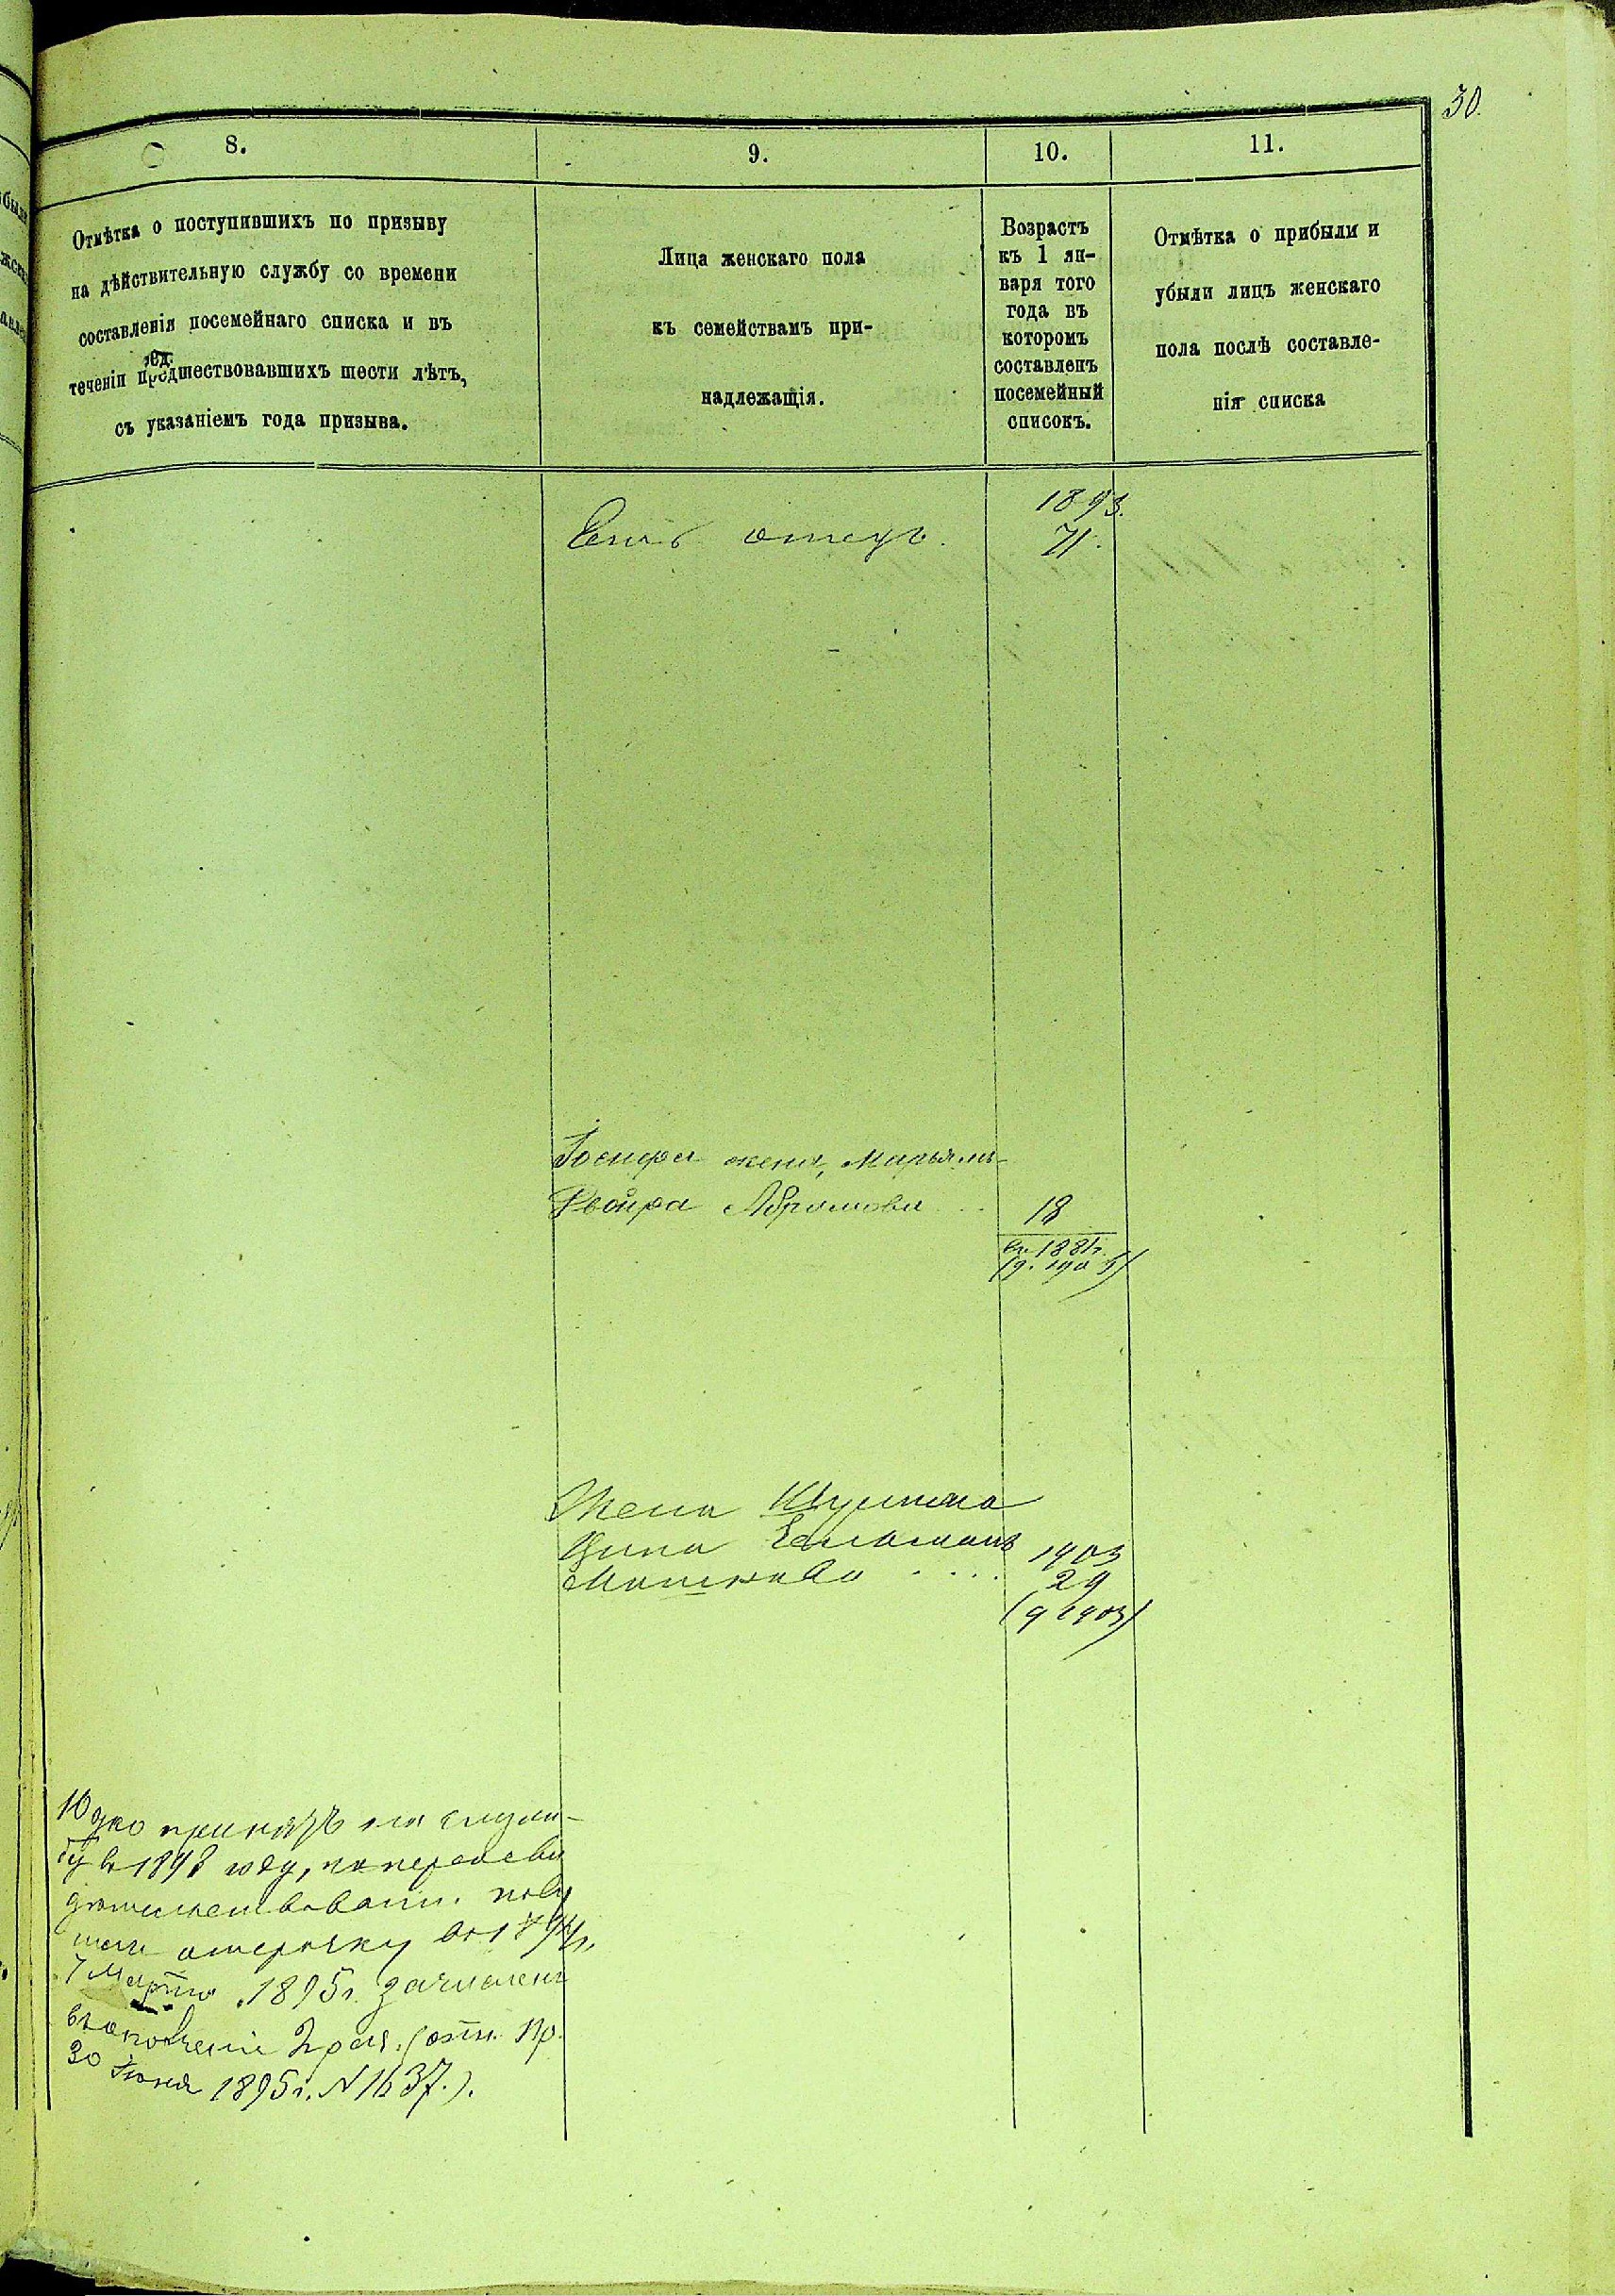 30.
8.
9.
10.
11.
Отмѣтка о поступившихъ по призыву
на дѣйствительную службу со времени
составленія посемейнаго списка и въ
теченіи предшествовавшихъ шести лѣтъ,
съ указаніемъ года призыва.
Лица женскаго пола
къ семействамъ при-
надлежащія.
Возрастъ
къ 1 ян-
варя того
года въ
которомъ
составленъ
посемейный
списокъ.
Отмѣтка о прибыли и
убыли лицъ женскаго
пола послѣ составле-
нія списка
1893.
отецъ. 71.
Іосифа жена, Марьямъ
Двойра Абрамова 18
1881г.
Жена Шулима
Ципа
Мошкова 1903
29
(1903)
Юдко принятъ на служ-
бу въ 1898 году,
отсрочку
7 Марта 1895г. зачисленъ
въ ополченіе 2 раз. (отн. Пр.
30 Іюня 1895г. N 1637.).